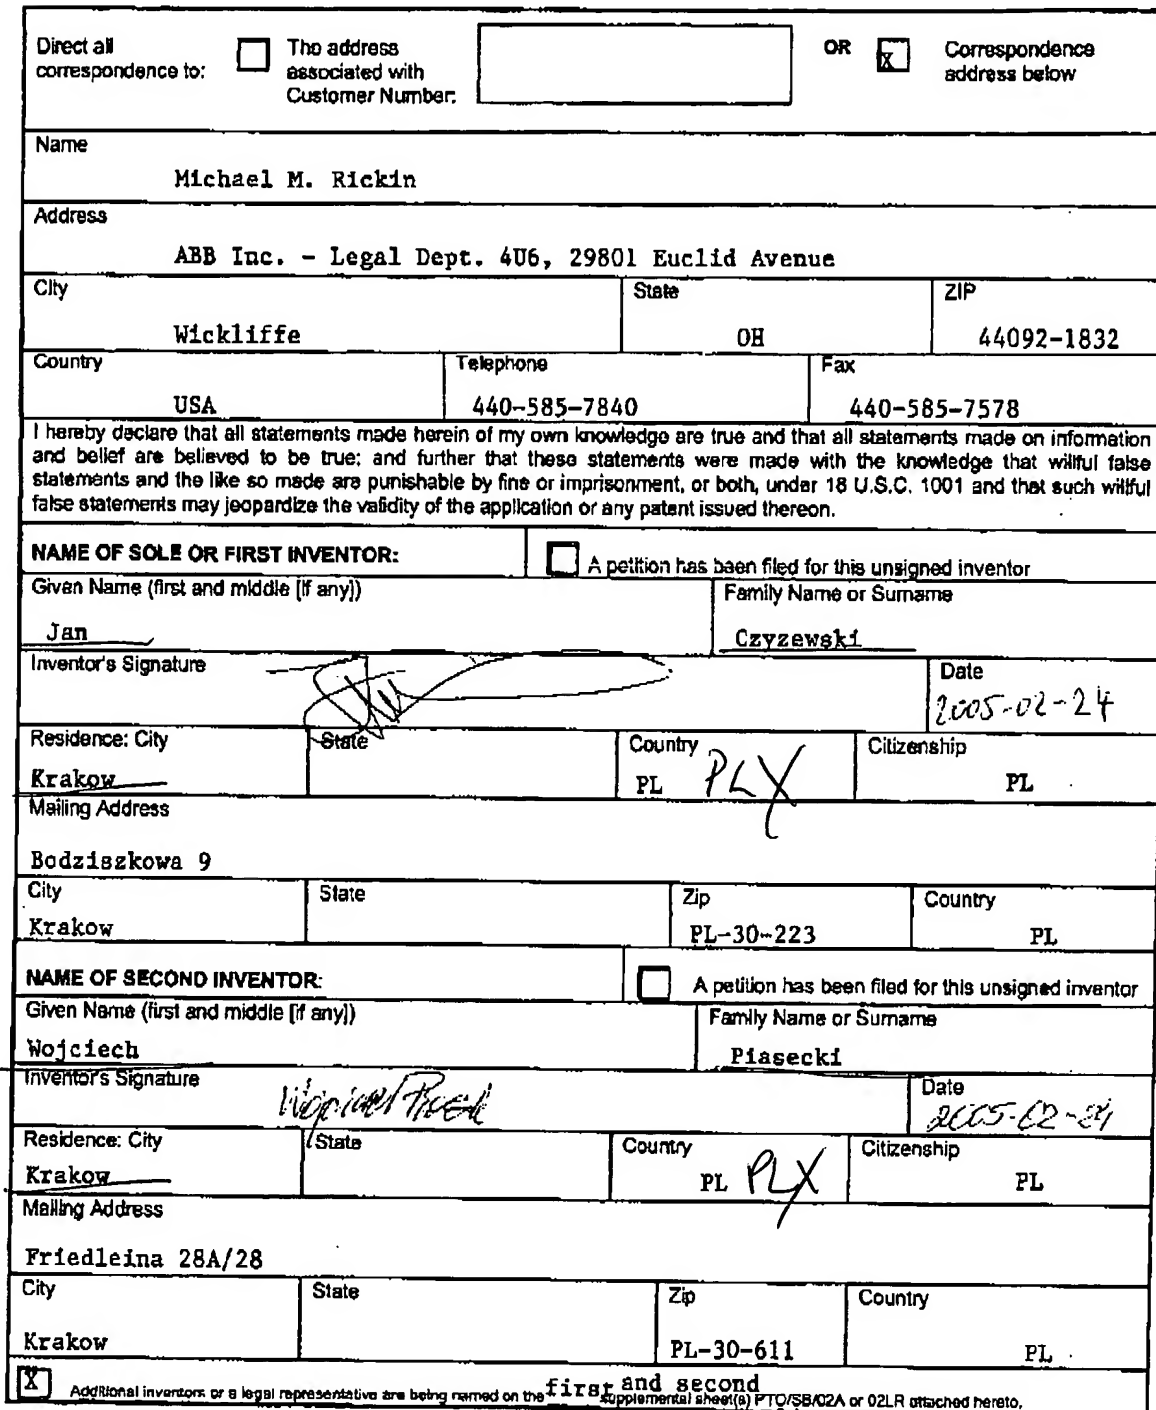 Direct all correspondence to:
The address associated with Customer Number:
OR
X
Correspondence address below
Name
Michael M. Rickin
Address
ABB Inc. - Legal Dept. 4U6, 29801 Euclid Avenue
City State ZIP
Wickliffe OH 44092-1832
Country Telephone Fax
USA 440-585-7840 440-585-7578
I hereby declare that all statements made herein of my own knowledge are true and that all statements made on information
and belief are believed to be true; and further that these statements were made with the knowledge that willful false
statements and the like so made are punishable by fine or imprisonment, or both, under 18 U.S.C. 1001 and that such willful
false statements may jeopardize the validity of the application or any patent issued thereon.
NAME OF SOLE OR FIRST INVENTOR:
A petition has been filed for this unsigned inventor
Given Name (first and middle [if any]) Family Name or Surname
Jan Czyzewski
Inventor's Signature Date
2005-02-24
Residence: City State Country Citizenship
Krakow PL PLX PL
Mailing Address
Bodziszkowa 9
City State Zip Country
Krakow PL-30-223 PL
NAME OF SECOND INVENTOR:
A petition has been filed for this unsigned inventor
Given Name (first and middle [if any]) Family Name or Surname
Wojciech Piasecki
Inventor's Signature Date
2005-02-24
Residence: City State Country Citizenship
Krakow PL PLX PL
Mailing Address
Friedleina 28A/28
City State Zip Country
Krakow PL-30-611 PL
X Additional inventors or a legal representative are being named on the first and second supplemental sheet(s) PTO/SB/02A or 02LR attached hereto.